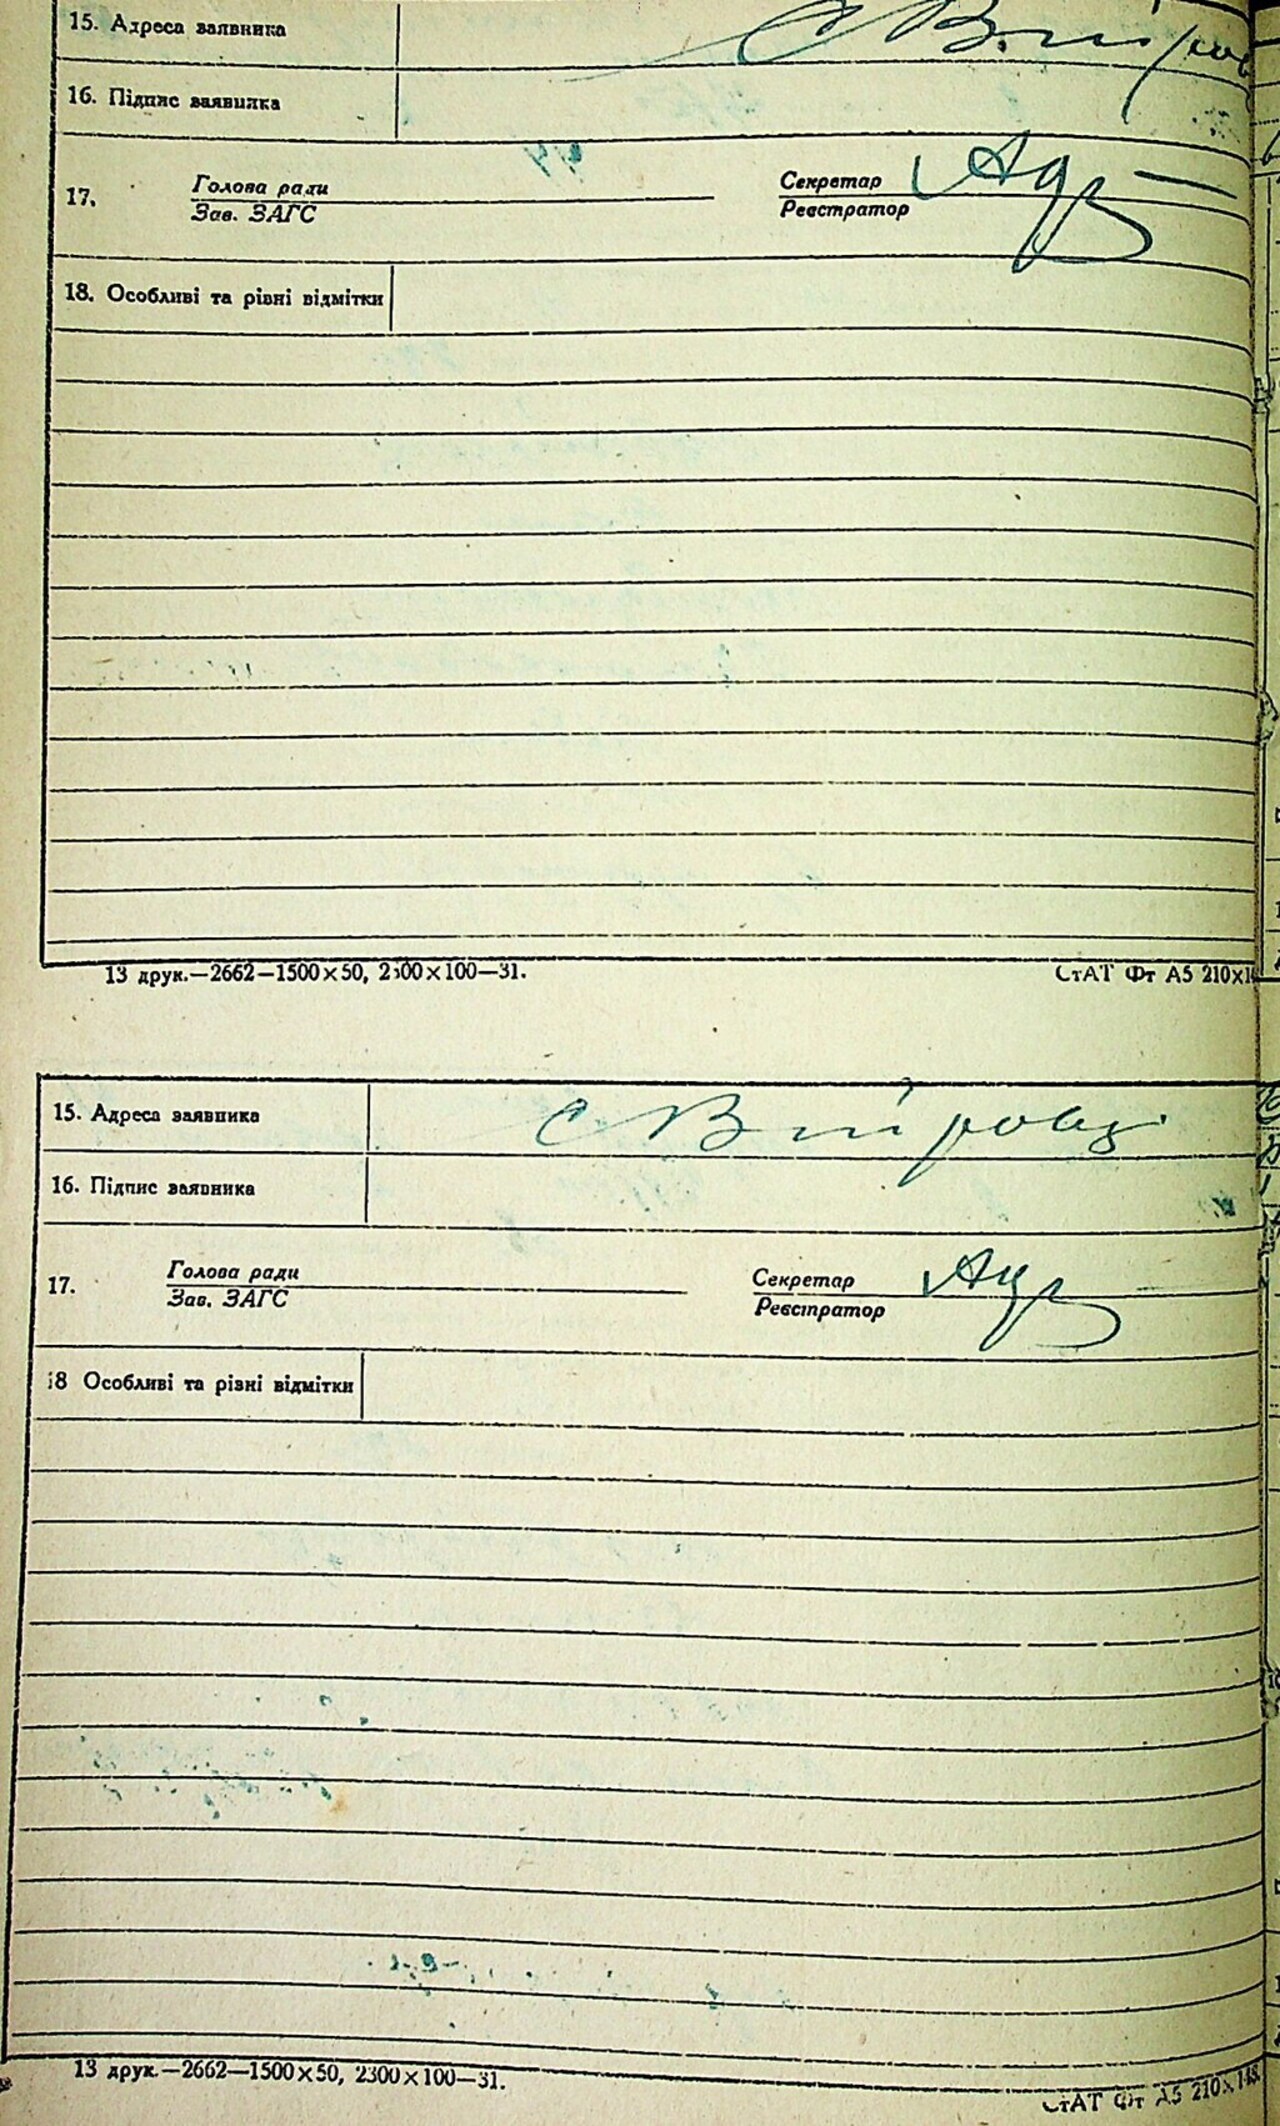 15. Адреса заявника
16. Підпис заявника
17. Голова ради Секретар
Зав. ЗАГС Реєстратор
18. Особливі та різні відмітки
13 друк.—2662—1500×50, 2300×100—31.
СтАТ Фт А5 210×1
15. Адреса заявника с
16. Підпис заявника
17. Голова ради Секретар
Зав. ЗАГС Реєстратор
18 Особливі та різні відмітки
13 друк.—2662—1500×50, 2300×100—31.
СтАТ Фт А5 210×148